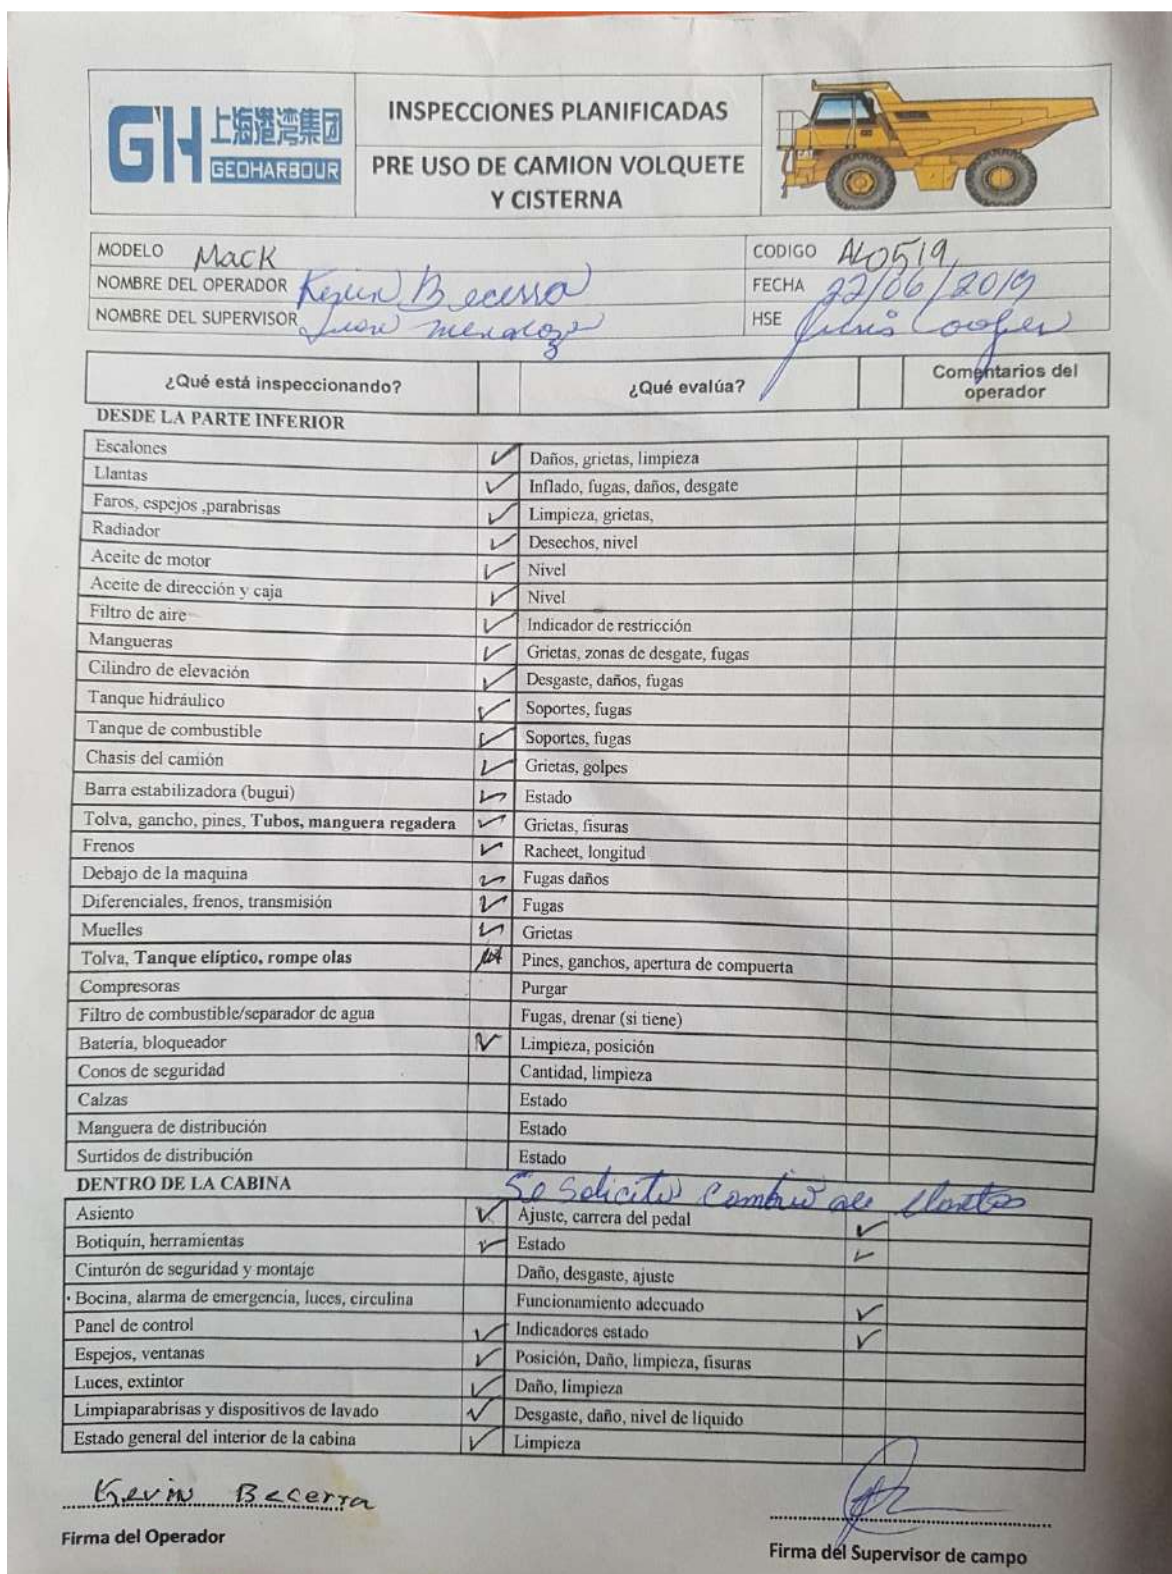 GH 上海港湾集团
GEOHARBOUR
INSPECCIONES PLANIFICADAS
PRE USO DE CAMION VOLQUETE
Y CISTERNA
MODELO Mack CODIGO AL0519
NOMBRE DEL OPERADOR Kevin Becerra FECHA 22/06/2019
NOMBRE DEL SUPERVISOR Juan Mendoza HSE Cooper
¿Qué está inspeccionando? ¿Qué evalúa? Comentarios del
operador
DESDE LA PARTE INFERIOR
Escalones ✓ Daños, grietas, limpieza
Llantas ✓ Inflado, fugas, daños, desgate
Faros, espejos ,parabrisas ✓ Limpieza, grietas,
Radiador ✓ Desechos, nivel
Aceite de motor ✓ Nivel
Aceite de dirección y caja ✓ Nivel
Filtro de aire ✓ Indicador de restricción
Mangueras ✓ Grietas, zonas de desgate, fugas
Cilindro de elevación ✓ Desgaste, daños, fugas
Tanque hidráulico ✓ Soportes, fugas
Tanque de combustible ✓ Soportes, fugas
Chasis del camión ✓ Grietas, golpes
Barra estabilizadora (bugui) ✓ Estado
Tolva, gancho, pines, Tubos, manguera regadera ✓ Grietas, fisuras
Frenos ✓ Racheet, longitud
Debajo de la maquina ✓ Fugas daños
Diferenciales, frenos, transmisión ✓ Fugas
Muelles ✓ Grietas
Tolva, Tanque elíptico, rompe olas Pines, ganchos, apertura de compuerta
Compresoras Purgar
Filtro de combustible/separador de agua Fugas, drenar (si tiene)
Batería, bloqueador ✓ Limpieza, posición
Conos de seguridad Cantidad, limpieza
Calzas Estado
Manguera de distribución Estado
Surtidos de distribución Estado
DENTRO DE LA CABINA Se solicito cambio de llantas
Asiento ✓ Ajuste, carrera del pedal ✓
Botiquín, herramientas ✓ Estado ✓
Cinturón de seguridad y montaje Daño, desgaste, ajuste
Bocina, alarma de emergencia, luces, circulina Funcionamiento adecuado ✓
Panel de control ✓ Indicadores estado ✓
Espejos, ventanas ✓ Posición, Daño, limpieza, fisuras
Luces, extintor ✓ Daño, limpieza
Limpiaparabrisas y dispositivos de lavado ✓ Desgaste, daño, nivel de líquido
Estado general del interior de la cabina ✓ Limpieza
Kevin Becerra
Firma del Operador
Firma del Supervisor de campo